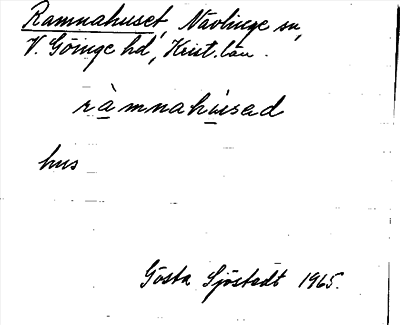 Ramnahuset, Nävlinge sn,
V. Göinge hd, Krist. län.
ràmnahùsəd
hus
Gösta Sjöstedt 1965.